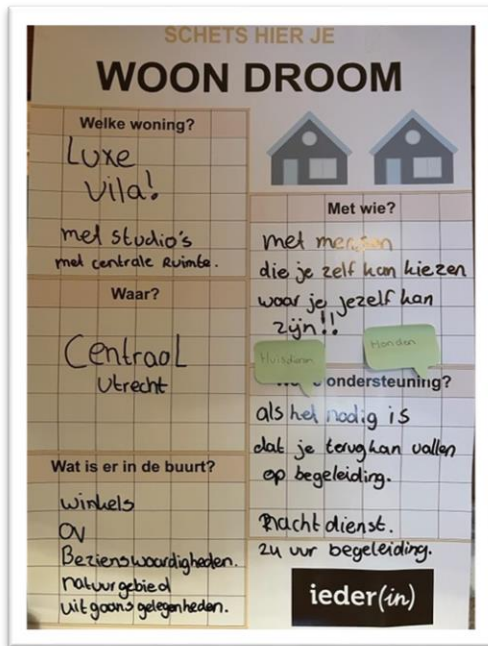 SCHETS HIER JE
WOON DROOM
Welke woning?
Luxe
Vila!
met studio's
met centrale Ruimte.
Waar?
Centraal
Utrecht
Wat is er in de buurt?
winkels
OV
Bezienswaardigheden.
natuurgebied
uitgaans gelegenheden.
Met wie?
met mensen
die je zelf kan kiezen
waar je jezelf kan
zijn!!
Huisdieren
Honden
ondersteuning?
als het nodig is
dat je terug kan vallen
op begeleiding.
Nachtdienst.
24 uur begeleiding.
ieder(in)